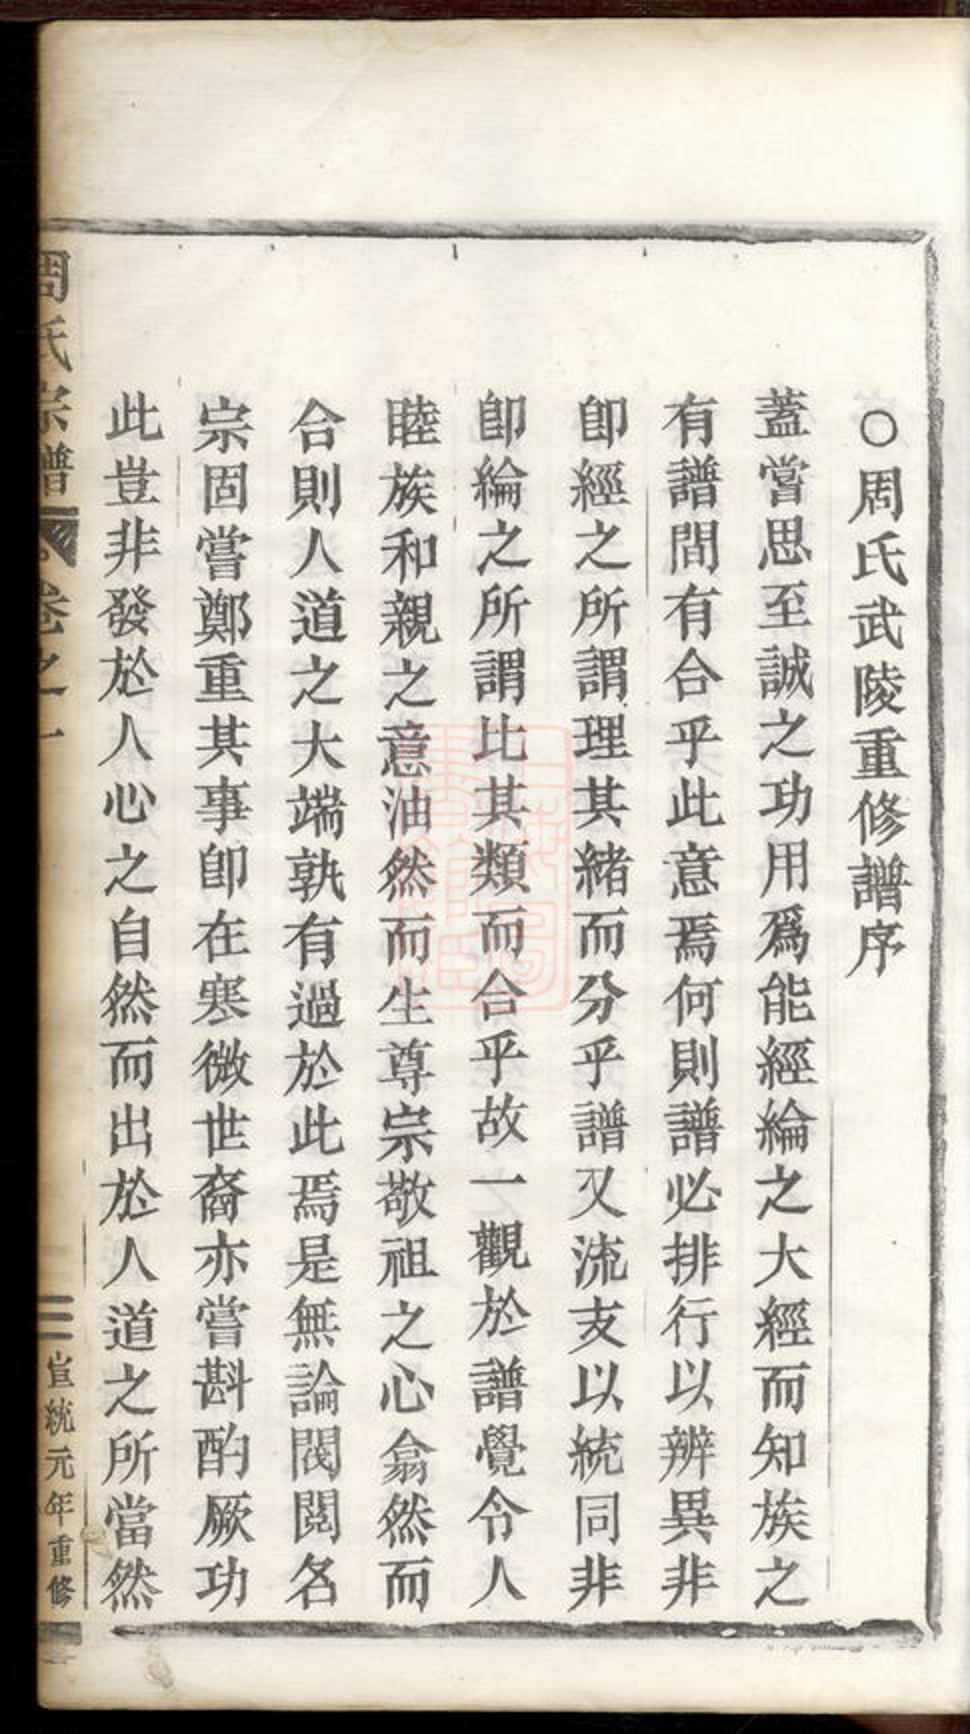 ○周氏武陵重修譜序
蓋嘗思至誠之功用爲能經綸之大經而知族之
有譜間有合乎此意焉何則譜必排行以辨異非
卽經之所謂理其緒而分乎譜又流支以統同非
卽綸之所謂比其類而合乎故一觀於譜覺令人
睦族和親之意油然而生尊宗敬祖之心翕然而
合則人道之大端孰有過於此焉是無論閥閱名
宗固嘗鄭重其事卽在寒微世裔亦嘗斟酌厥功
此豈非發於人心之自然而出於人道之所當然
周氏宗譜 卷之一 二 宣統元年重修